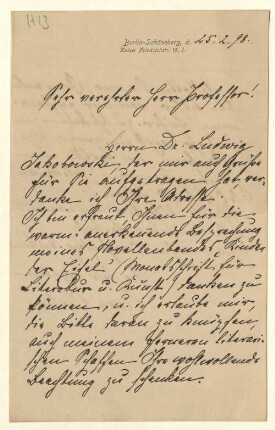 H 13
Berlin-Schöneberg, d. 25. 2. 98.
Kaiser Friedrichstr. 18. I.
Sehr verehrter Herr Professor!
Herrn Dr. Ludwig
Jakobowski der mir auch Grüße
für Sie aufgetragen hat ver-
danke ich Ihre Adresse.
Ich bin erfreut, Ihnen für die
warm anerkennende Besprechung
meines Novellenbandes „Kinder
der Eifel" (Monatsschrift für
Literatur u. Kunst) danken zu
können, u. ich erlaube mir,
die Bitte daran zu knüpfen
auch meinem ferneren literari-
schen Schaffen Ihre wohlwollende
Beachtung zu schenken.